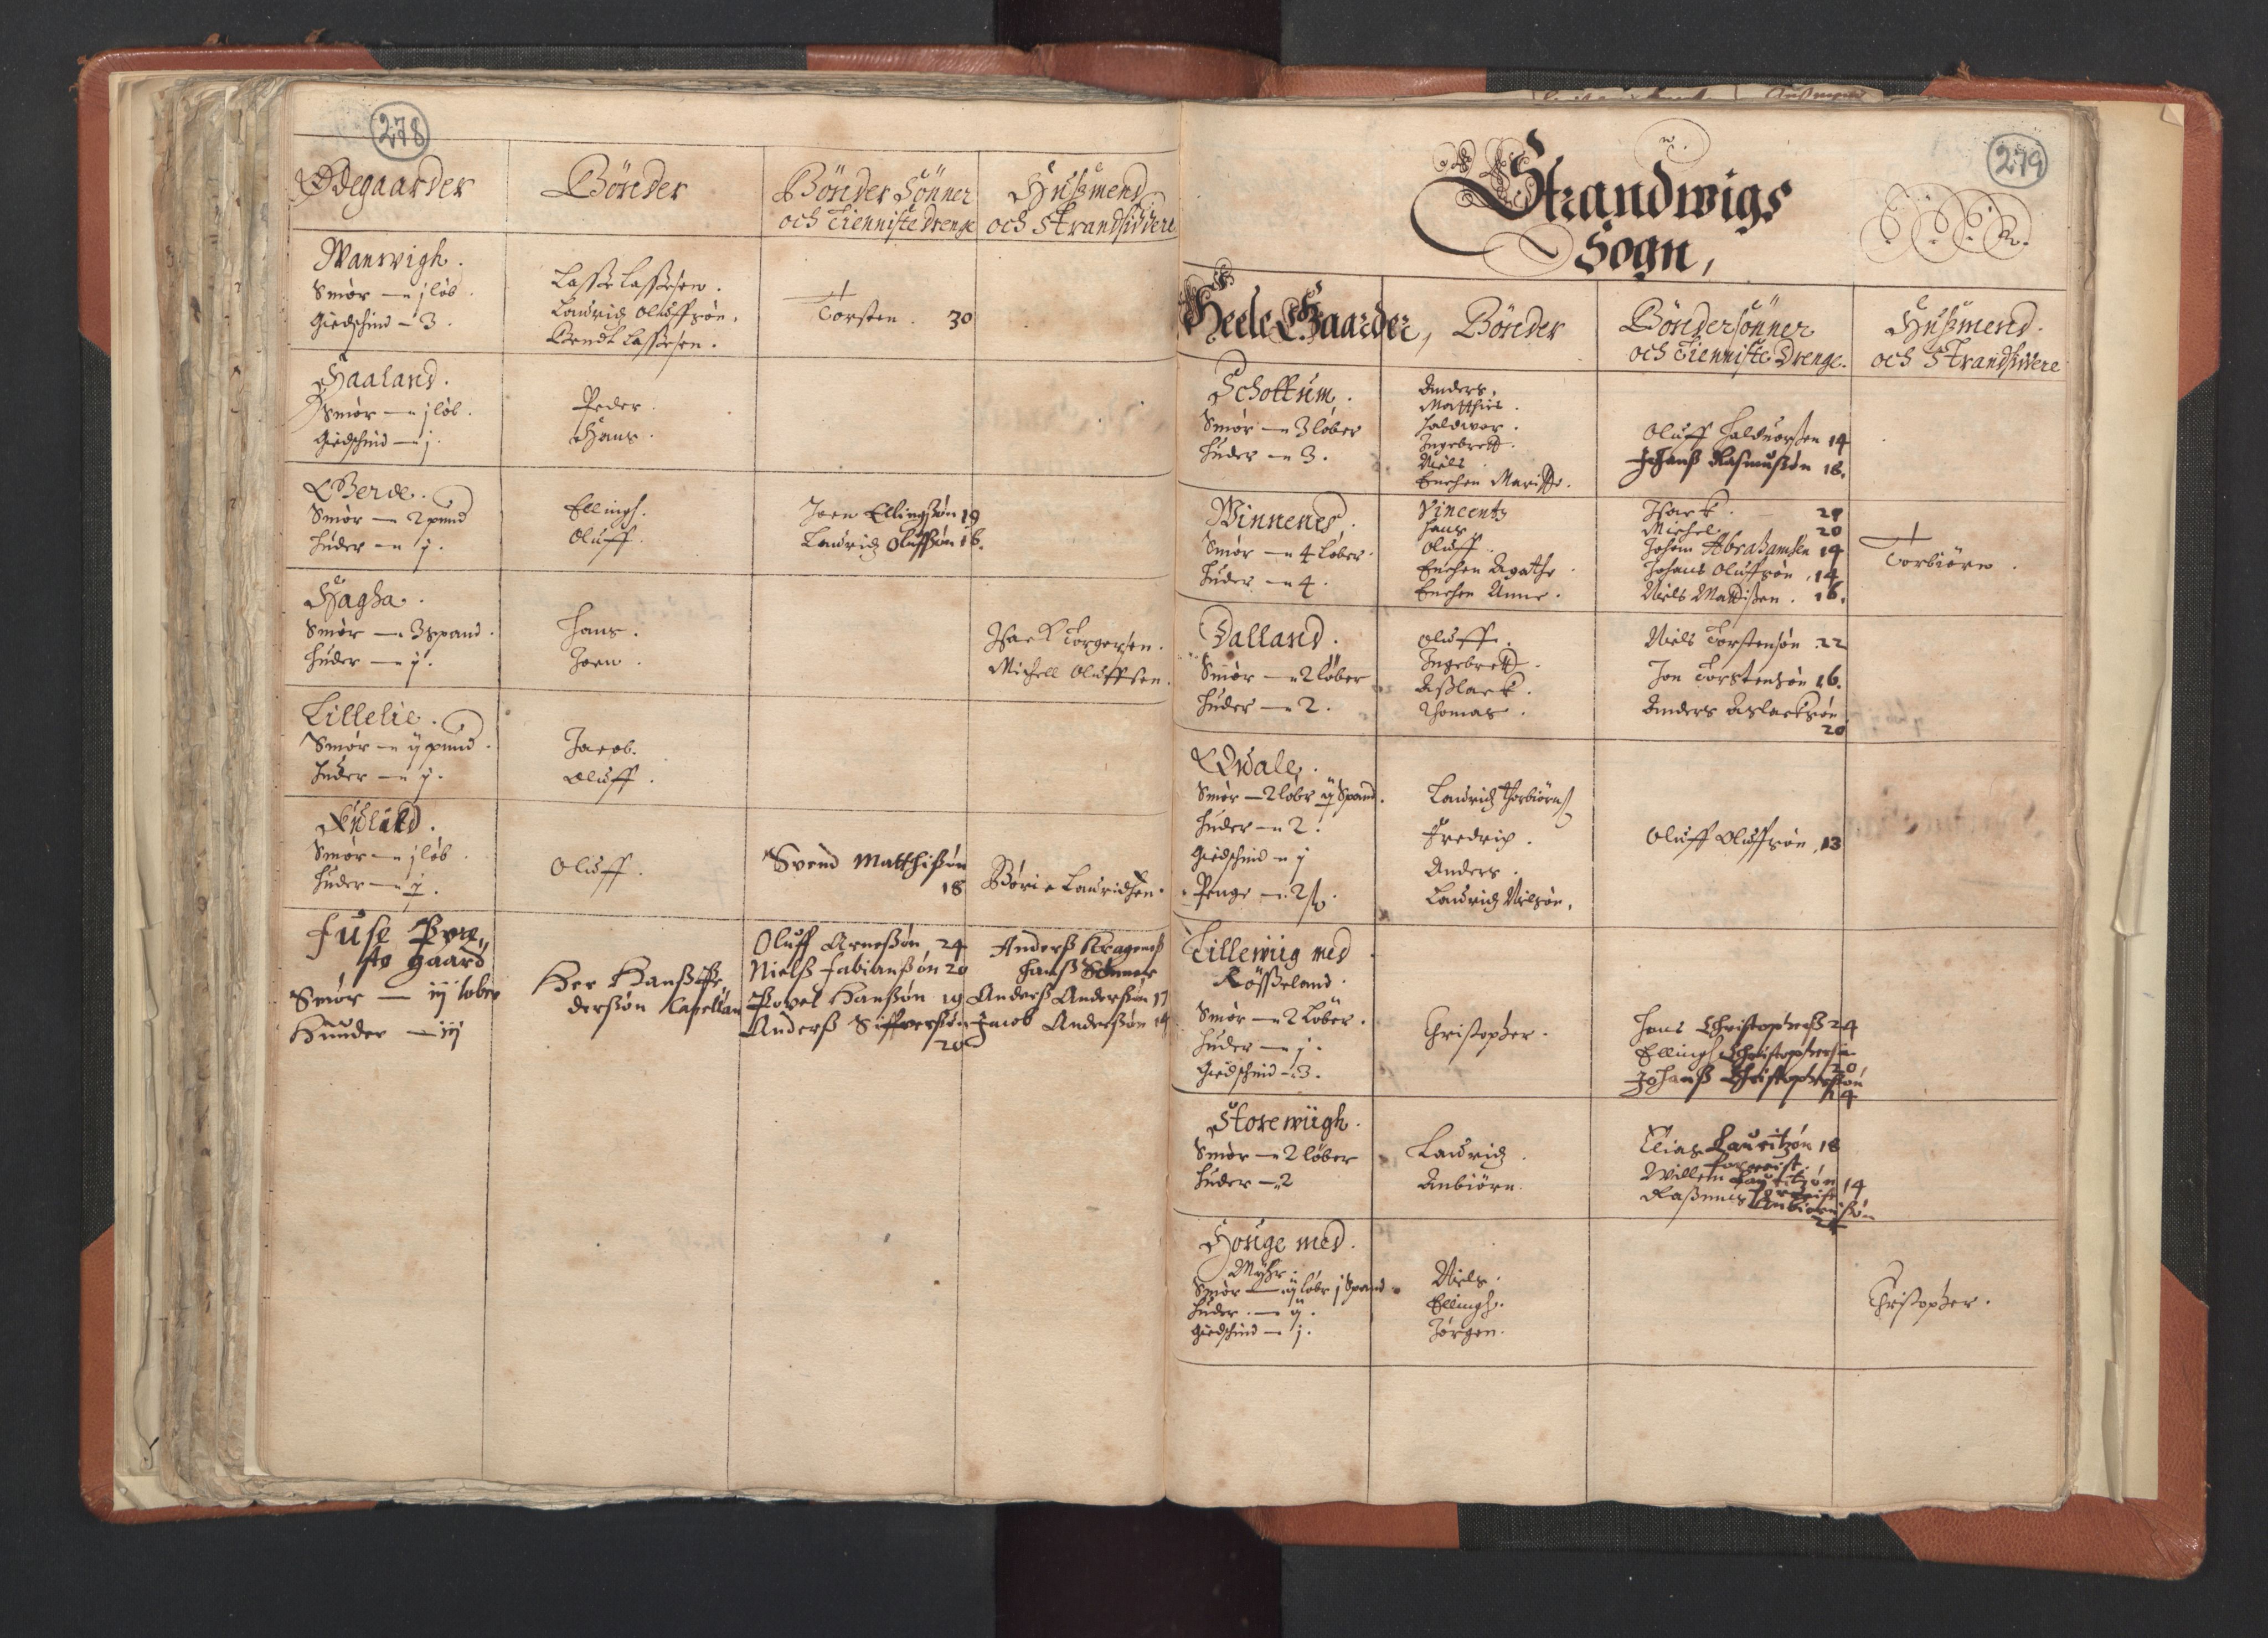 278
Ødegaarder
Bönder
Bönder Sönner
och Tienniste Drenge
Huszmend
och Strandsiddere
Wanwigh.
Smør — j løb.
Giedschind — 3.
Lasse Lassesen.
Lauridz Oluffsøn.
Bendt Lassesen.
Torsten. 30
Haaland.
Smør — j løb.
Giedschind — j.
Peder.
Hans.
Berde.
Smør — 2 pund
Huder — j.
Ellingh.
Oluff.
Joen Ellingszøn 19
Lauridz Oluffszøn 16.
Hagha.
Smør — 3 spand.
Huder — j.
Hans.
Joen.
Isack Torgersen.
Michell Oluffsen.
Lillelie.
Smør — ij pund.
Huder — j.
Jacob.
Oluff.
Smør — j løb.
Huder — j.
Oluff.
Svend Matthiszøn
18
Børie Lauridsen.
Fuse Præ„
ste gaard
Smør — iij løber
Huuder — iij
Her Hansz Pe„
derszøn Capellan
Oluff Arneszøn 24
Nielsz Fabianszøn 20
Povel Hanszøn 19
Andersz Siffverszøn
20
Andersz Kragenesz
Hansz Sönner
Andersz Anderszøn 17
Jacob Anderszøn 14
279
Strandwigs
Sogn,
Heele Gaarder,
Bönder
Bönder sönner
och Tienniste Drenge.
Huszmend.
och Strandsiddere
Schottum.
Smør — 3 løber
Huder — 3.
Anders.
Matthies.
Haldwor.
Ingebrett.
Niels.
Enchen Maritte.
Oluff Haldworsen 14
Johansz Rasmuszøn 18.
Winnenes.
Smør — 4 Løber.
Huder — 4.
Vincentz
Hans
Oluff.
Enchen Agathe.
Enchen Anne.
Isack. 28
Michel 20
Johan Abrahamsen 14
Johans Oluffsøn. 14
Niels Mattiszen. 16.
Torbiørn.
Dalland.
Smør — 2 løber
Huder — 2.
Oluff.
Ingebrett.
Aszlack.
Thomas.
Niels Torstensøn 22
Jon Torstensøn 16.
Anders Aslacksøn
20
Qwale.
Smør — 2 løbr ij Spand.
Huder — 2.
Giedschind — j
Penge — 2
Lauridz Thorbiørnsz
Fredrich.
Anders.
Lauridz Nielsøn.
Oluff Oluffsøn 13
Lillewiig med
Rösseland.
Smør — 2 Løber.
Huder — j.
Giedschind — 3.
Christopher.
Hans Christophersz 24
Ellingh Christophersøn
20
Johansz Christopherszøn
14
Store wiigh.
Smør — 2 løber
Huder — 2
Lauridz.
Anbiørn.
Elias Lauritzøn 18
forreist.
Willem Lauritzøn 14
forreist
Raszmus Anbiörnszøn
Houge med.
Myhr
Smør — ij løbr j Spand
Huder — ij.
Giedschind — j.
Niels.
Ellingh.
Jørgen.
Christopher.